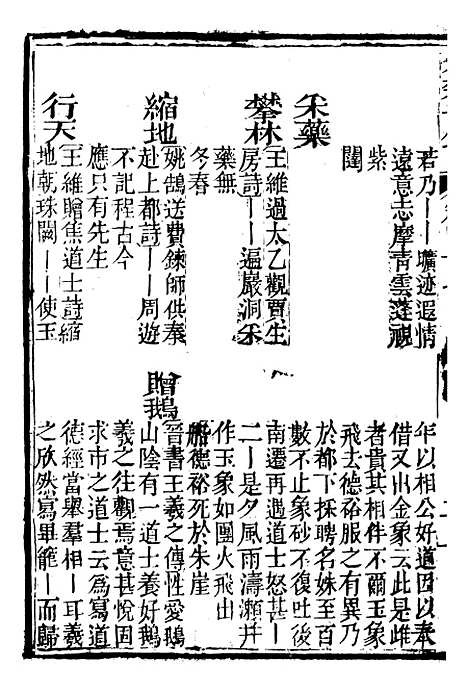 若乃丨丨壙迹遐情
遠意志摩青雲蓬視
紫
闥
采藥
攀林
王維過太乙觀賈生
房詩丨丨遍巖洞采
藥無
冬春
縮地
姚鵠送費鍊師供奉
赴上都詩丨丨周遊
不記程古今
應只有先生
行天
王維贈焦道士詩縮
地朝珠闕丨丨使玉
年以相公好道因以奉
借又出金象云此是雌
者貴其相伴不爾玉象
飛去德裕服之有異乃
於都下採聘名姝至百
數不止象砂不復吐後
南遷再遇道士怒甚丨
二丨是夕風雨濤瀨并
作玉象如團火飛出
船德裕死於朱崖
贈鵝
晉書王羲之傳性愛鵝
山陰有一道士養好鵝
羲之往觀焉意甚悅固
求市之道士云爲寫道
德經當舉羣相丨耳羲
之欣然寫畢籠丨而歸